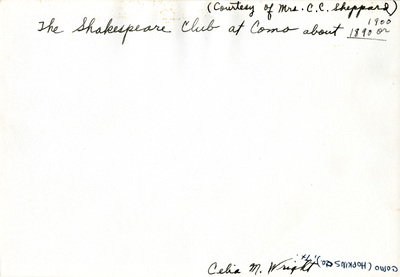 (Courtesy of Mrs. C.C. Sheppard)
1900
The Shakespeare Club at Como about 1890 or
Celia M. Wright
Como (Hopkins Co), Tx.